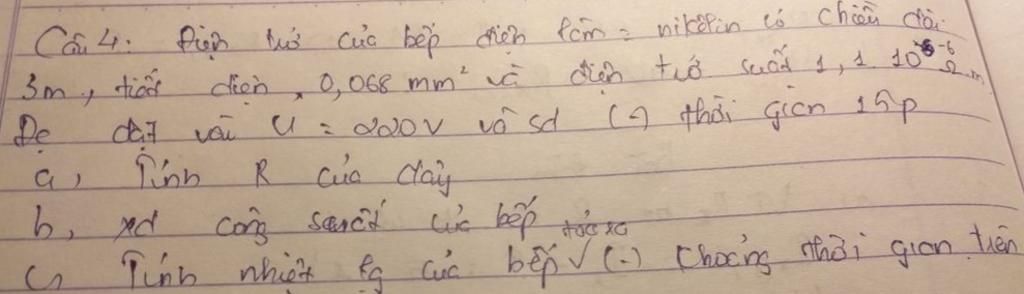 Câu 4: Điện trở của bếp điện làm = nikêlin có chiều dài
3m, tiết diện 0,068 mm² và điện trở suất 1,1 10⁻⁶ Ω.m
Đc đặt vào U = 220V và sd (-) thời gian 15p
a, Tính R của dây
b, xd công suất của bếp
c, Tính nhiệt lg của bếp tỏa ra (-) khoảng thời gian trên